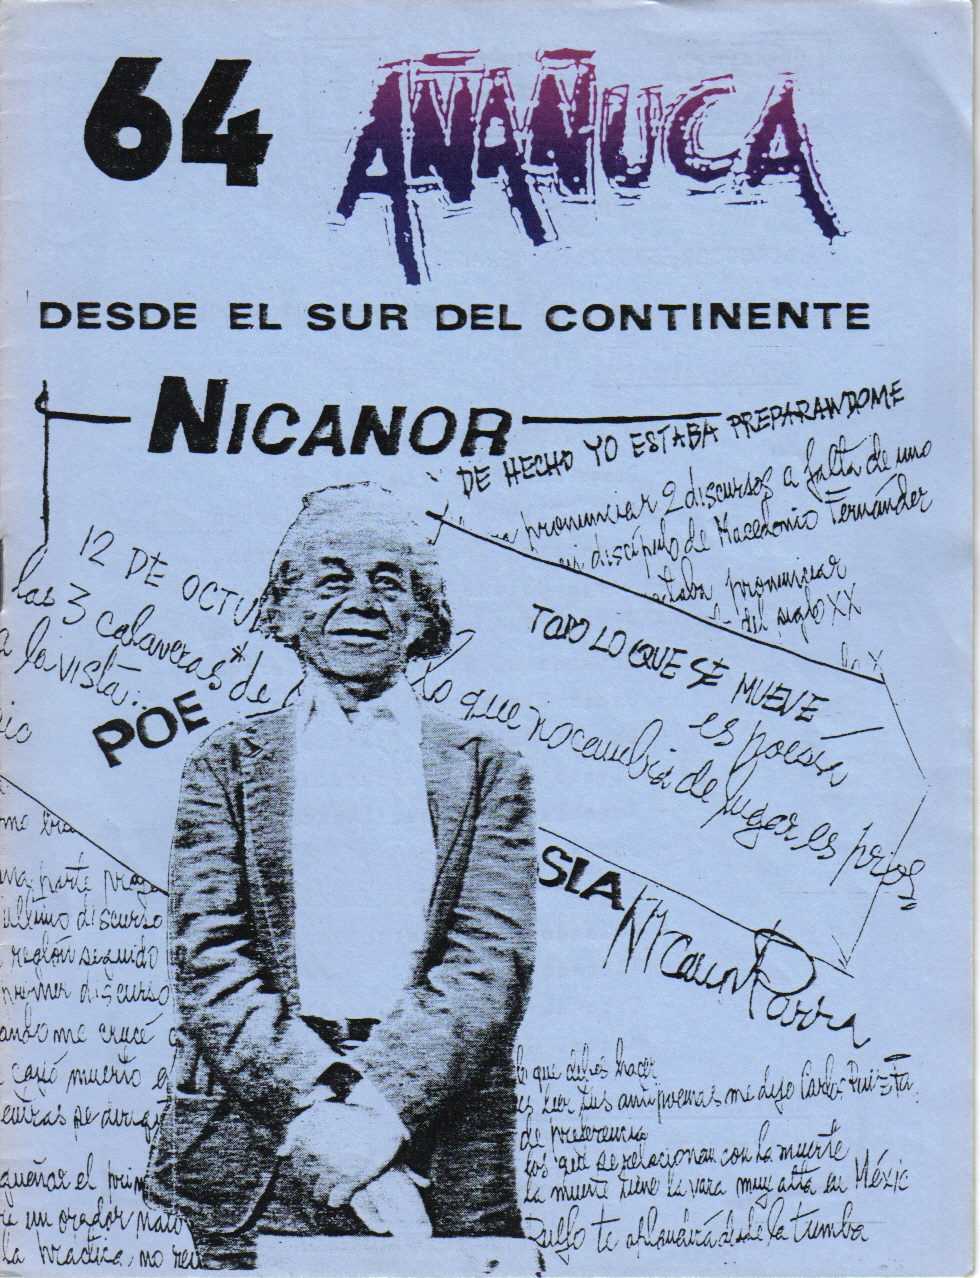 64 AÑAÑUCA
DESDE EL SUR DEL CONTINENTE
NICANOR
DE HECHO YO ESTABA PREPARANDOME
pronunciar 2 discursos a falta de uno
discípulo de Macedonio Fernández
pronunciar
del siglo XX
12 DE OCTU
las 3 calaveras* de
a la vista:
TODO LO QUE SE MUEVE
es poesía
lo que no cambia de lugar es prosa
POE
SIA
Nicanor Parra
me
una parte
último discurso
reglón seguido
primer discurso
ando me crucé
cayó muerto
el prim
un orador nato
la practica, no
lo que debes hacer
es leer tus antipoemas me dijo Carlos Ruiz T.
de preferencia
los que se relacionan con la muerte
la muerte tiene la vara muy alta en Méxic
Rulfo te aplaudirá desde la tumba